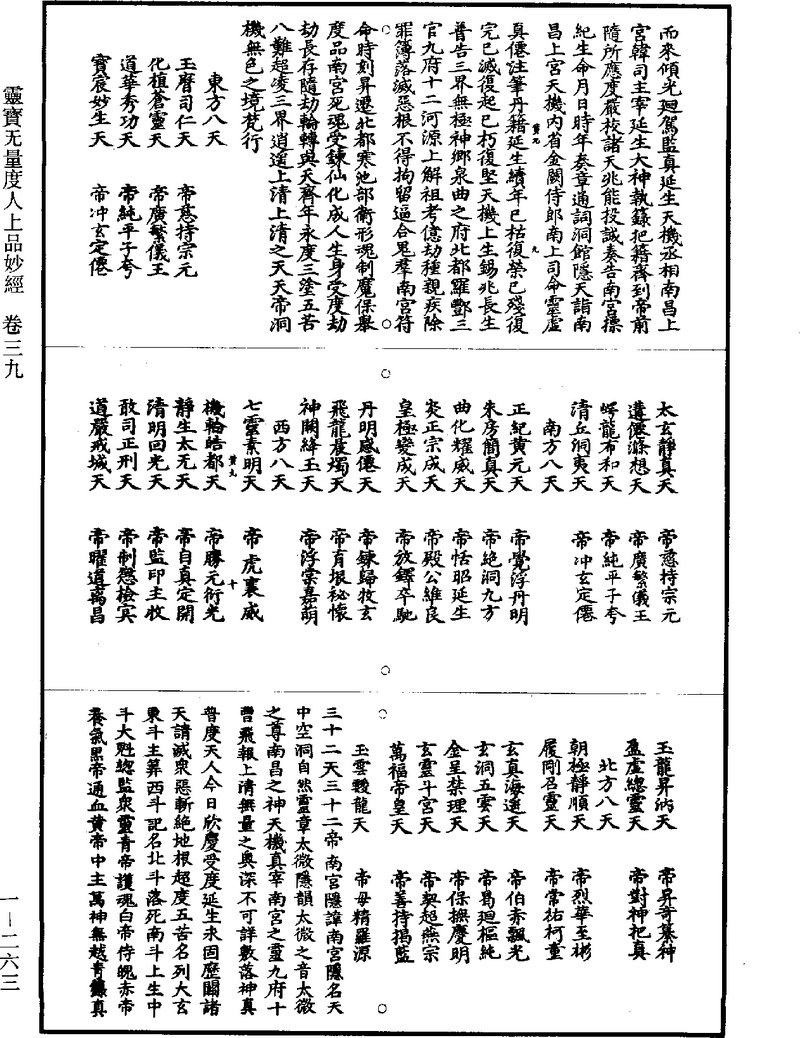 靈寶无量度人上品妙經　卷三九
而來傾光廻駕監真延生天機丞相南昌上
宮韓司主宰延生大神執籙把籍齎到帝前
隨所應度嚴校諸天兆能投誠奏告南宮標
紀生命月日時年奏章通詞洞館隱天詣南
昌上宮天機內省金闕侍郎南上司命靈虛
真僊注筆丹籍延生續年已枯復榮已殘復
完已滅復起已朽復堅天機上生錫兆長生
普告三界無極神鄉泉曲之府北都羅酆三
官九府十二河源上解祖考億劫種親疾除
罪簿落滅惡根不得拘留逼合鬼羣南宮符
命時刻昇遷北都寒池部衛形魂制魔保舉
度品南宮死魂受鍊仙化成人生身受度劫
劫長存隨劫輪轉與天齊年永度三塗五苦
八難超凌三界逍遥上清上清之天天帝洞
機無色之境梵行
東方八天
玉曆司仁天　帝慈持宗元
化植蒼靈天　帝廣繁儀王
道華秀功天　帝純平子夸
寶宸妙生天　帝冲玄定僊
太玄靜真天　帝慈持宗元
遺僊滌想天　帝廣繁儀王
崿龍布和天　帝純平子夸
清丘洞夷天　帝冲玄定僊
南方八天
正紀黄元天　帝覺浮丹明
朱房簡真天　帝絶洞九方
曲化耀威天　帝恬昭延生
炎正宗成天　帝殿公維良
皇極變成天　帝放鐸卒馳
丹明感僊天　帝鍊歸牧玄
飛龍晨燭天　帝育垠祕懷
神闕絳玉天　帝浮棠嘉萌
西方八天
七靈素明天　帝虎裏威
機輪皓都天　帝勝元衍光
靜生太无天　帝自真定開
清明回光天　帝監印主收
敢司正刑天　帝制愆檢宾
道嚴戒城天　帝曜道离昌
玉龍昇炳天　帝昇奇纂神
盈虛總靈天　帝對神祀真
北方八天
朝極靜順天　帝烈華至彬
履剛召靈天　帝常祐柯重
玄真海遊天　帝伯赤飄光
玄洞五雲天　帝曷廻樞純
金呈禁理天　帝保撫慶明
玄靈斗宮天　帝契超燕宗
萬福帝皇天　帝善持揭監
玉雲駿龍天　帝毋精羅源
三十二天三十二帝南宮隱諱南宮隱名天
中空洞自然靈章太微隱韻太微之音太微
之尊南昌之神天機真宰南宮之靈九府十
曹飛報上清無量之奥深不可詳數落神真
普度天人今日欣慶受度延生永固歷關諸
天請滅衆惡斷絶地根超度五苦名列太玄
東斗主算西斗記名北斗落死南斗上生中
斗大魁總監衆靈青帝護魂白帝侍魄赤帝
養氣黑帝通血黄帝中主萬神無越青籙真
一—二六三